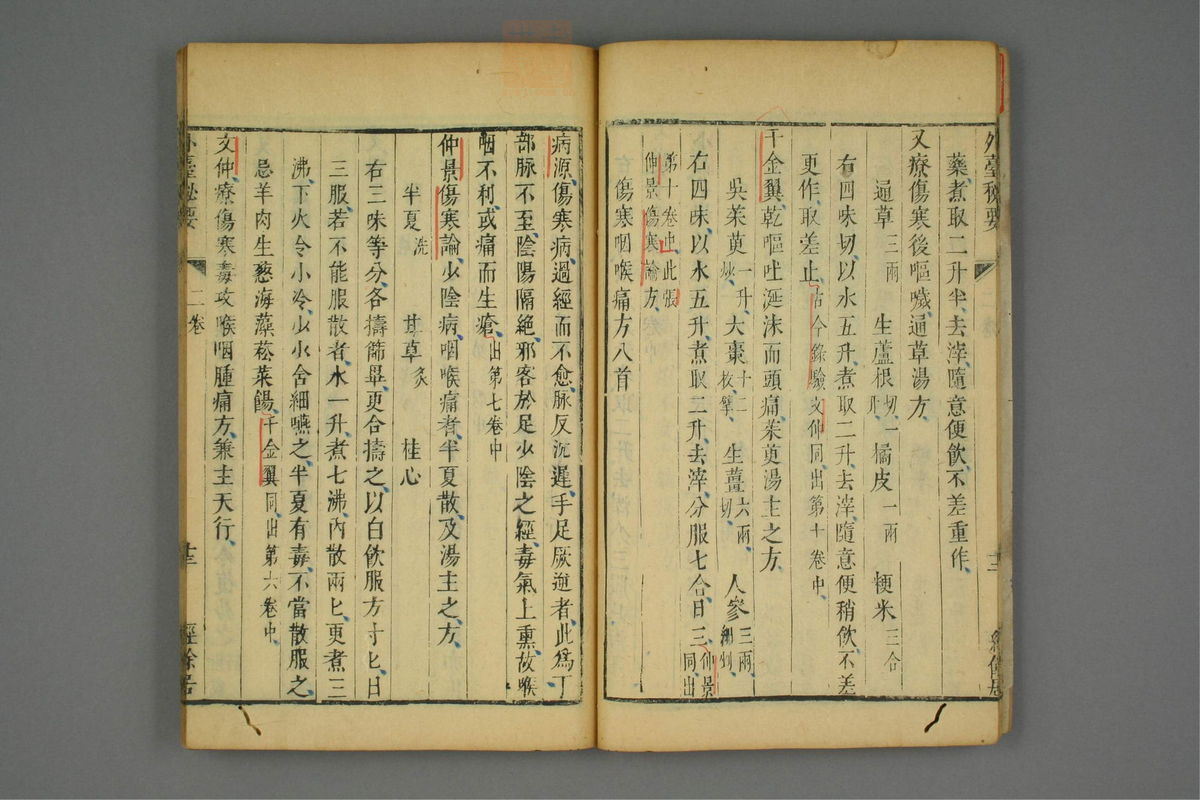 外臺秘要
藥煮取二升半去滓隨意便飲不差重作
又療傷寒後嘔噦通草湯方
通草三兩 生蘆根切一升 橘皮一兩 粳米三合
右四味切以水五升煮取二升去滓隨意便稍飲不差
更作取差止古今錄驗文仲同出第十卷中
千金翼乾嘔吐涎沫而頭痛茱萸湯主之方
吳茱萸一升炒 大棗十二枚擘 生薑六兩切 人參三兩細剉
右四味以水五升煮取二升去滓分服七合日三仲景同出
第十卷中此張仲景傷寒論方
傷寒咽喉痛方八首
病源傷寒病過經而不愈脉反沉遲手足厥逆者此爲丁
部脉不至陰陽隔絶邪客於足少陰之經毒氣上熏故喉
咽不利或痛而生瘡出第七卷中
仲景傷寒論少陰病咽喉痛者半夏散及湯主之方
半夏洗 甘草炙 桂心
右三味等分各擣篩畢更合擣之以白飲服方寸匕日
三服若不能服散者水一升煮七沸內散兩匕更煮三
沸下火令小冷少少含細嚥之半夏有毒不當散服之
忌羊肉生葱海藻菘菜餳千金翼同出第六卷中
文仲療傷寒毒攻喉咽腫痛方兼主天行
外臺秘要 二卷 十三 經餘居